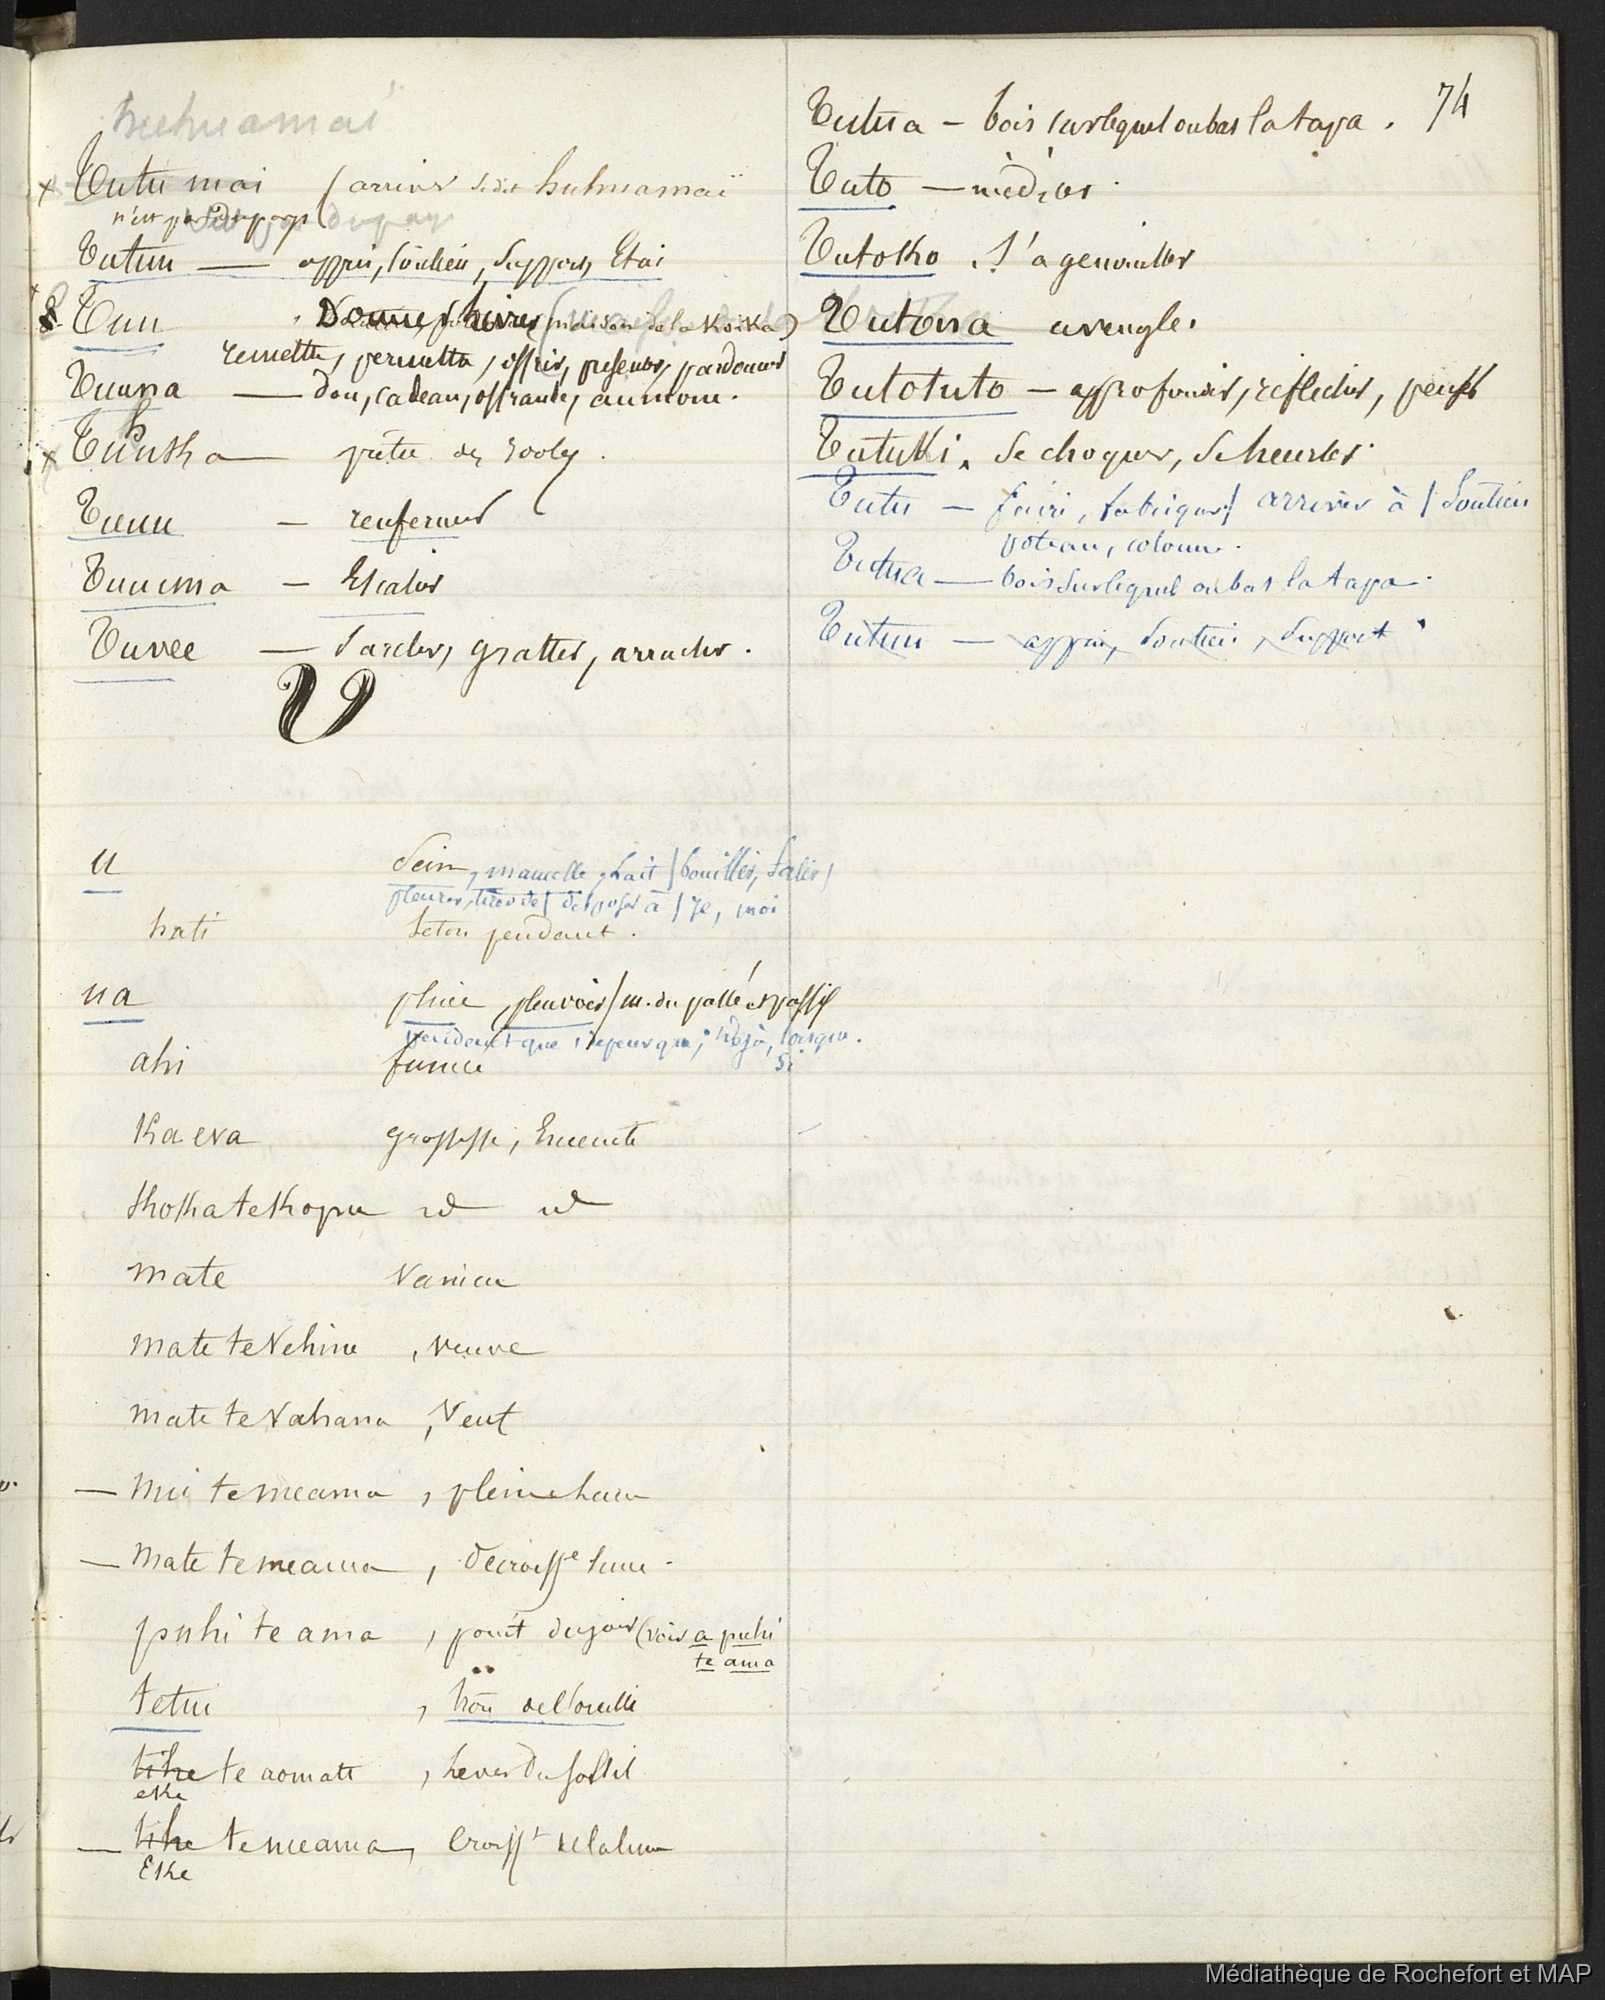 huhuamai
Tutu mai (arriver se dit huhuamaï
n'est pas du pays
Tutuu — appui, soutien, support, Etai
Tuu Donner, livrer (maison de la Koika)
remettre, permettre, offrir, présenter, pardonner
Tuuna — don, cadeau, offrande, aumone.
Tuhuka — prêtre
Tuuu — renfermer
Tuuima — Escalier
Tuvee — Sarcler, gratter, arracher.
U
u Sein, mamelle, Lait / bouillir, saler /
pleurer, / disposer à / je, moi
hati teton pendant.
ua pluie, pleuvoir / m. du passé et passif
pendant que, depuis que, déjà, lorsque.
si
ahi fumée
Kaeva grossesse, Enceinte
KoKateKopu id id
mate Vaincu
mate te Vehine, veuve
mate te Vahana, Veuf
— nui te meama, pleine lune
— mate te meama, décroisse lune.
puhi te ama, point du jour (voir a puhi
te ama
tetui, trou de l'oreille
tihe te aomati, Lever du soleil
eke
— tihe te meama, Croisst de la lune
Eke
74
Tutua — bois sur lequel on bat la tapa.
Tuto — médire.
Tutoko. S'agenouiller
Tutona aveugle.
Tutotuto — approfondir, réfléchir, penser
Tutuki. Se choquer, Se heurter.
Tutu — fabriquer / arriver à / Soutien
poteau, colonne.
Tutua — bois sur lequel on bat la tapa.
Tutuu — appui, soutien, support
Médiathèque de Rochefort et MAP